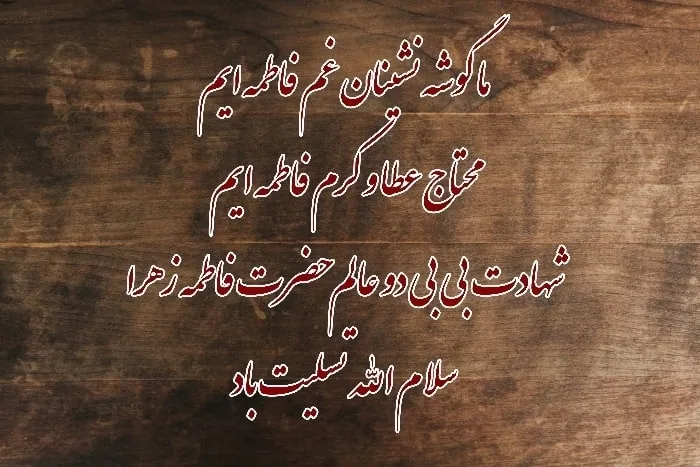 ما گوشه نشینان غم فاطمه ایم
محتاج عطا و کرم فاطمه ایم
شهادت بی بی دو عالم حضرت فاطمه زهرا
سلام الله تسلیت باد